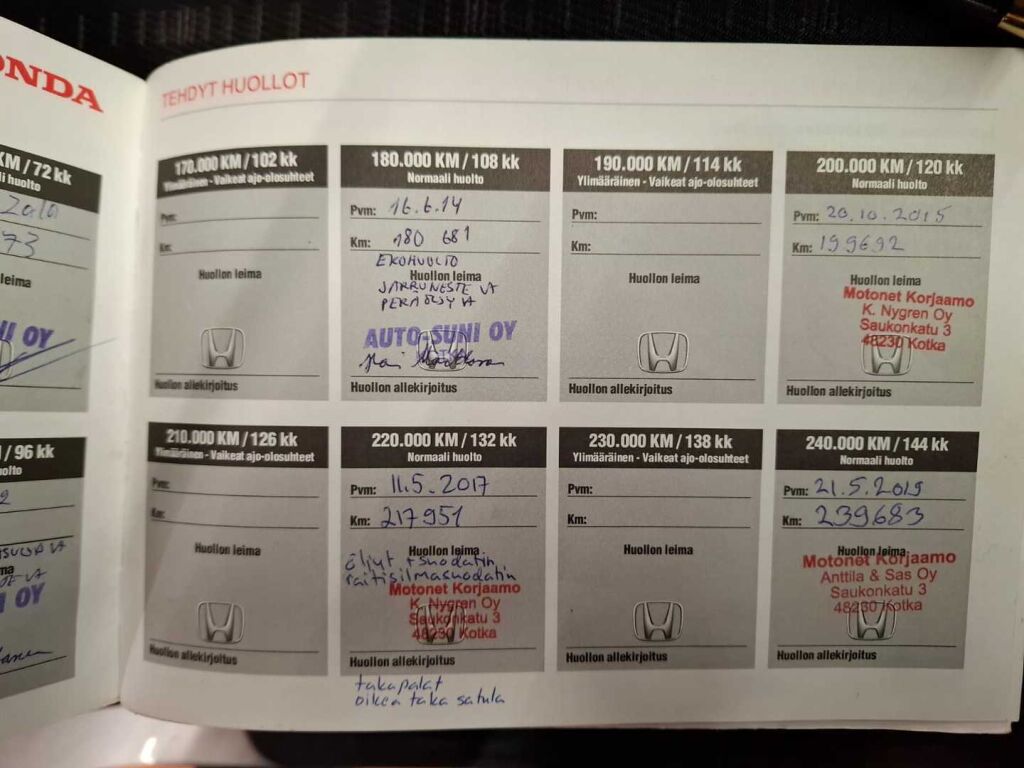 ONDA
KM / 72 kk
li huolto
73
leima
NI OY
/ 96 kk
olto
2
I OY
TEHDYT HUOLLOT
170.000 KM / 102 kk
Ylimääräinen - Vaikeat ajo-olosuhteet
Pvm:
Km:
Huollon leima
Huollon allekirjoitus
180.000 KM / 108 kk
Normaali huolto
Pvm: 16.6.14
Km: 180 681
EKOHUOLTO
Huollon leima
JARRUNESTE VA
PERÄÖLJY VA
AUTO-SUNI OY
Huollon allekirjoitus
190.000 KM / 114 kk
Ylimääräinen - Vaikeat ajo-olosuhteet
Pvm:
Km:
Huollon leima
Huollon allekirjoitus
200.000 KM / 120 kk
Normaali huolto
Pvm: 20.10.2015
Km: 199692
Huollon leima
Motonet Korjaamo
K. Nygren Oy
Saukonkatu 3
48230 Kotka
Huollon allekirjoitus
210.000 KM / 126 kk
Ylimääräinen - Vaikeat ajo-olosuhteet
Pvm:
Km:
Huollon leima
Huollon allekirjoitus
220.000 KM / 132 kk
Normaali huolto
Pvm: 11.5.2017
Km: 217951
Huollon leima
öljyt + suodatin
raitisilmasuodatin
Motonet Korjaamo
K. Nygren Oy
Saukonkatu 3
48230 Kotka
Huollon allekirjoitus
takapalat
oikea taka satula
230.000 KM / 138 kk
Ylimääräinen - Vaikeat ajo-olosuhteet
Pvm:
Km:
Huollon leima
Huollon allekirjoitus
240.000 KM / 144 kk
Normaali huolto
Pvm: 21.5.2019
Km: 239683
Huollon leima
Motonet Korjaamo
Anttila & Sas Oy
Saukonkatu 3
48230 Kotka
Huollon allekirjoitus